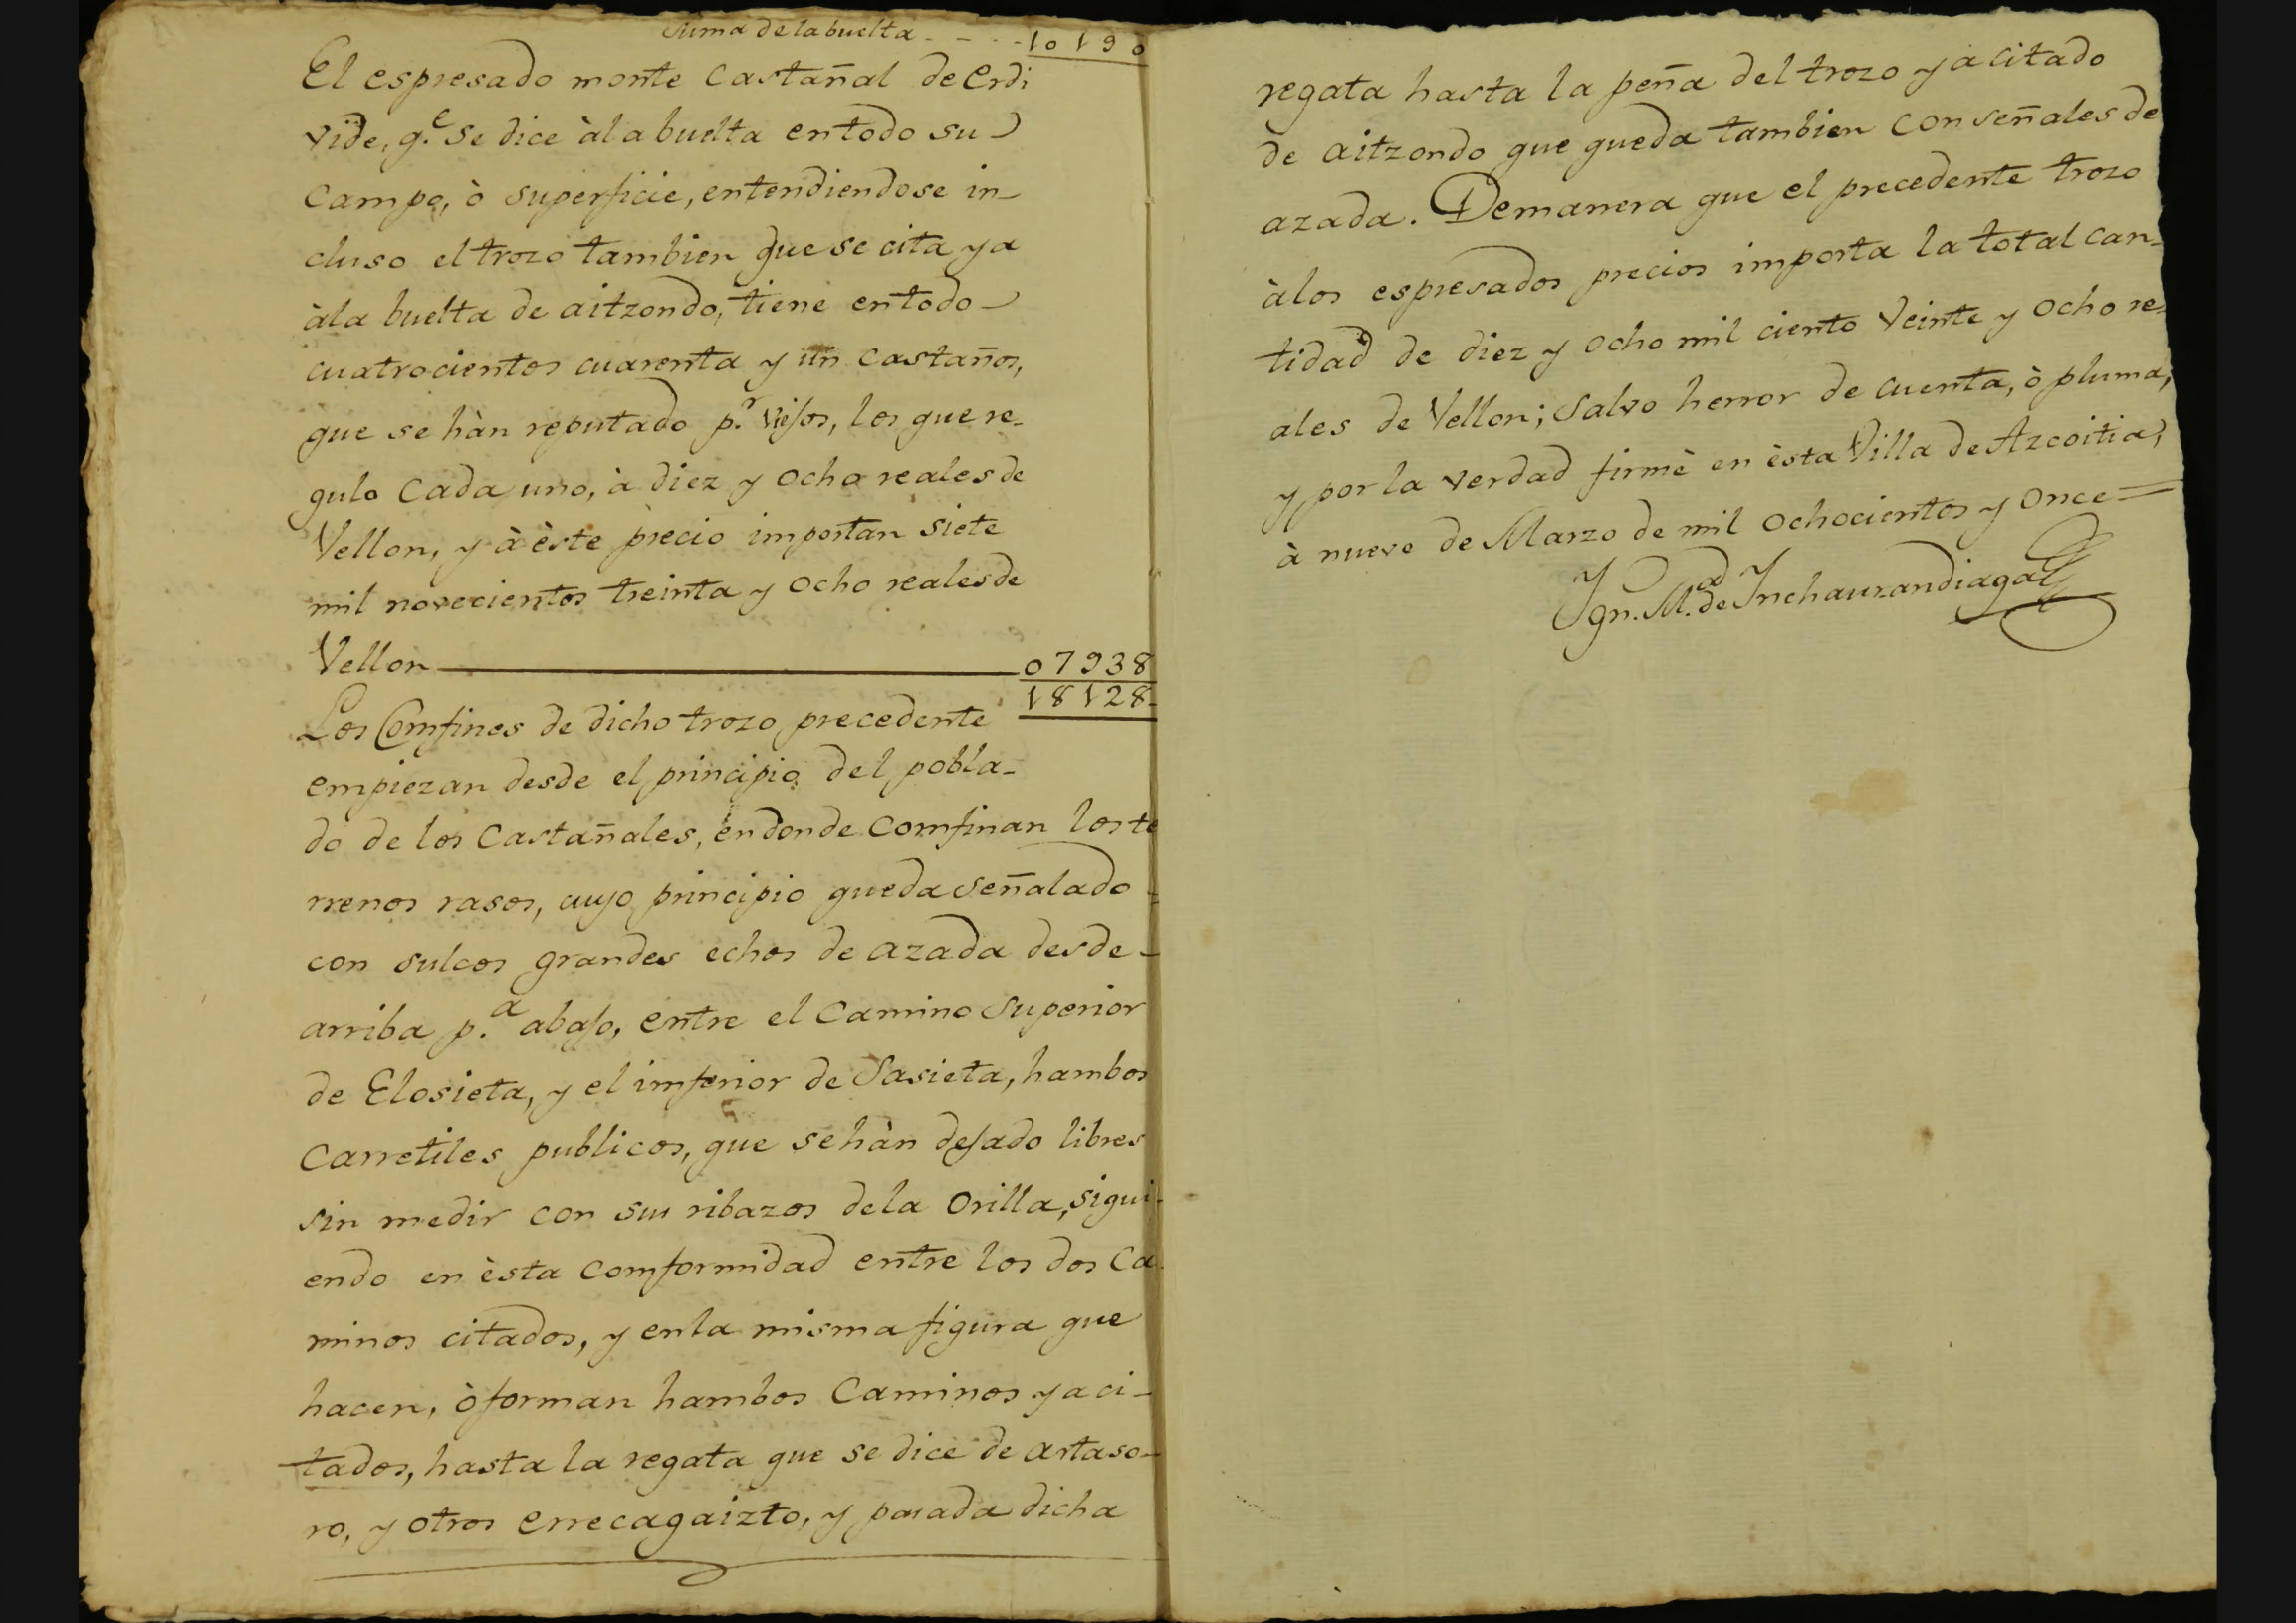 Suma de la buelta - - - - 10190
El espresado monte Castañal de Erdi
vide, q.e se dice àla buelta en todo su
Campo, ò superficie, entendiendose in-
cluso el trozo tambien que se cita ya
àla buelta de aitzondo, tiene en todo
cuatrocientos cuarenta y un castaños,
que se hàn reputado p.r viejos, los que re-
gulo Cada uno, à diez y ocho reales de
Vellon, y à èste precio importan siete
mil novecientos treinta y ocho reales de
Vellon 07938
18128-
Los Comfines de dicho trozo precedente
empiezan desde el principio del pobla-
do de los Castañales, en donde Comfinan los te
rrenos rasos, cuyo principio queda señalado -
con sulcos grandes echos de azada desde -
arriba p.a abajo, entre el Camino Superior
de Elosieta, y el imferior de Sasieta, hambos
Carretiles publicos, que se hàn dejado libres
sin medir con sus ribazos de la Orilla, sigui-
endo en èsta Comformidad entre los dos Ca-
minos citados, y en la misma figura que
hacen, ò forman hambos Caminos ya ci-
tados, hasta la regata que se dice de artaso-
ro, y otros errecagaizto, y pasada dicha
regata hasta la peña del trozo ya citado
de aitzondo que queda tambien con señales de
azada. Demanera que el precedente trozo
àlos espresados precios importa la total can-
tidad de diez y ocho mil ciento veinte y ocho re-
ales de Vellon; Salvo herror de cuenta, ò pluma,
y por la verdad firmè en èsta Villa de Azcoitia,
à nueve de Marzo de mil ochocientos y once =
Ygn. M.a de Ynchaurandiaga